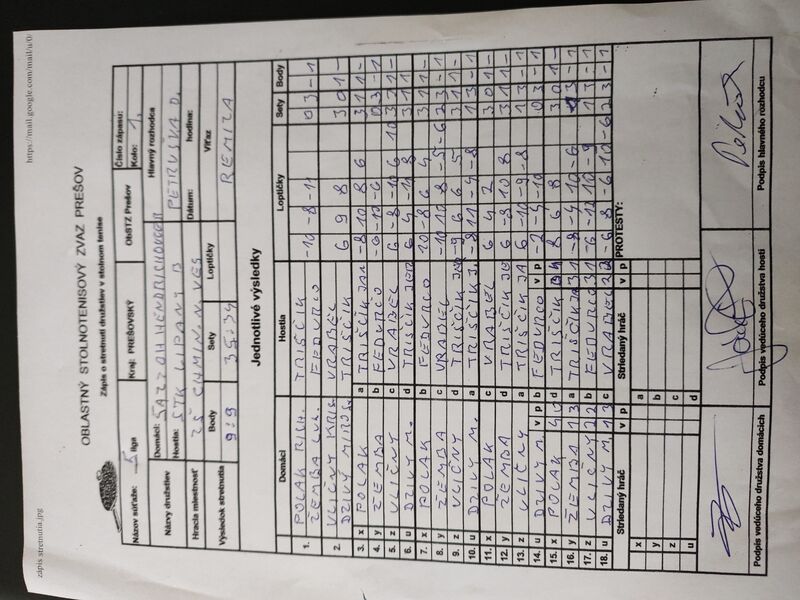 zápis stretnutia.jpg
https://mail.google.com/mail/u/0/
OBLASTNÝ STOLNOTENISOVÝ ZVAZ PREŠOV
Zápis o stretnutí družstiev v stolnom tenise
Názov súťaže: 5 liga Kraj: PREŠOVSKÝ ObSTZ Prešov Číslo zápasu:
Kolo: 1.
Názvy družstiev Domáci: Hlavný rozhodca
Hostia: STK LIPANY B PETRUŠKA D.
Hracia miestnosť ZŠ CHMIN. N. VES Dátum: hodina:
Výsledok stretnutia Body Sety Loptičky Víťaz
9:9 35:34 REMÍZA
Jednotlivé výsledky
Domáci Hostia Loptičky Sety Body
1. POLAK RICH. TRIŠČIK -10 -8 -11 0 3 - 1
ŽEMBA LUK. FEDURCO
2. VLIČNÝ KRIS. VRABEL 6 9 8 3 0 1 -
DZIVÝ MIROS. TRIŠČIK
3. x POLAK a TRIŠČIK JAN -8 10 8 6 3 1 1 -
4. y ŽEMBA b FEDURCO 0 3 - 1
5. z VLIČNÝ c VRABEL 6 -8 -10 6 10 3 2 1 -
6. u DZIVÝ M. d TRIŠČIK 3 1 1 -
7. x POLAK b FEDURCO 10 -8 6 4 3 1 1 -
8. y ŽEMBA c VRABEL -10 10 8 -5 -6 2 3 - 1
9. z VLIČNÝ d TRIŠČIK -9 6 6 5 3 1 1 -
10. u DZIVÝ M. a TRIŠČIK J. -8 11 -4 -8 1 3 - 1
11. x POLAK c VRABEL 6 4 2 3 0 1 -
12. y ŽEMBA d TRIŠČIK 6 -8 10 8 3 1 1 -
13. z VLIČNÝ a TRIŠČIK JA 6 -10 -9 -8 1 3 - 1
14. u DZIVÝ M. b FEDURCO -2 -4 -10 0 3 - 1
15. x POLAK d TRIŠČIK 8 6 8 3 0 1 -
16. y ŽEMBA a TRIŠČIK -8 -4 10 -6 1 3 - 1
17. z VLIČNÝ b FEDURCO -6 -12 10 -9 1 3 - 1
18. u DZIVÝ M. c VRABEL -6 8 -6 10 -6 2 3 - 1
Striedaný hráč v p Striedaný hráč v p PROTESTY:
x a
y b
z c
u d
Podpis vedúceho družstva domácich Podpis vedúceho družstva hostí Podpis hlavného rozhodcu